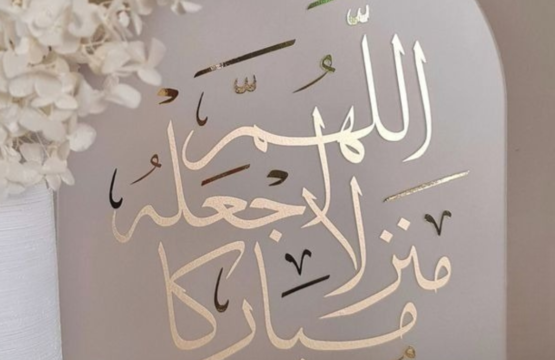 اللّهمّ
اجعلهُ
منزلا
مباركا